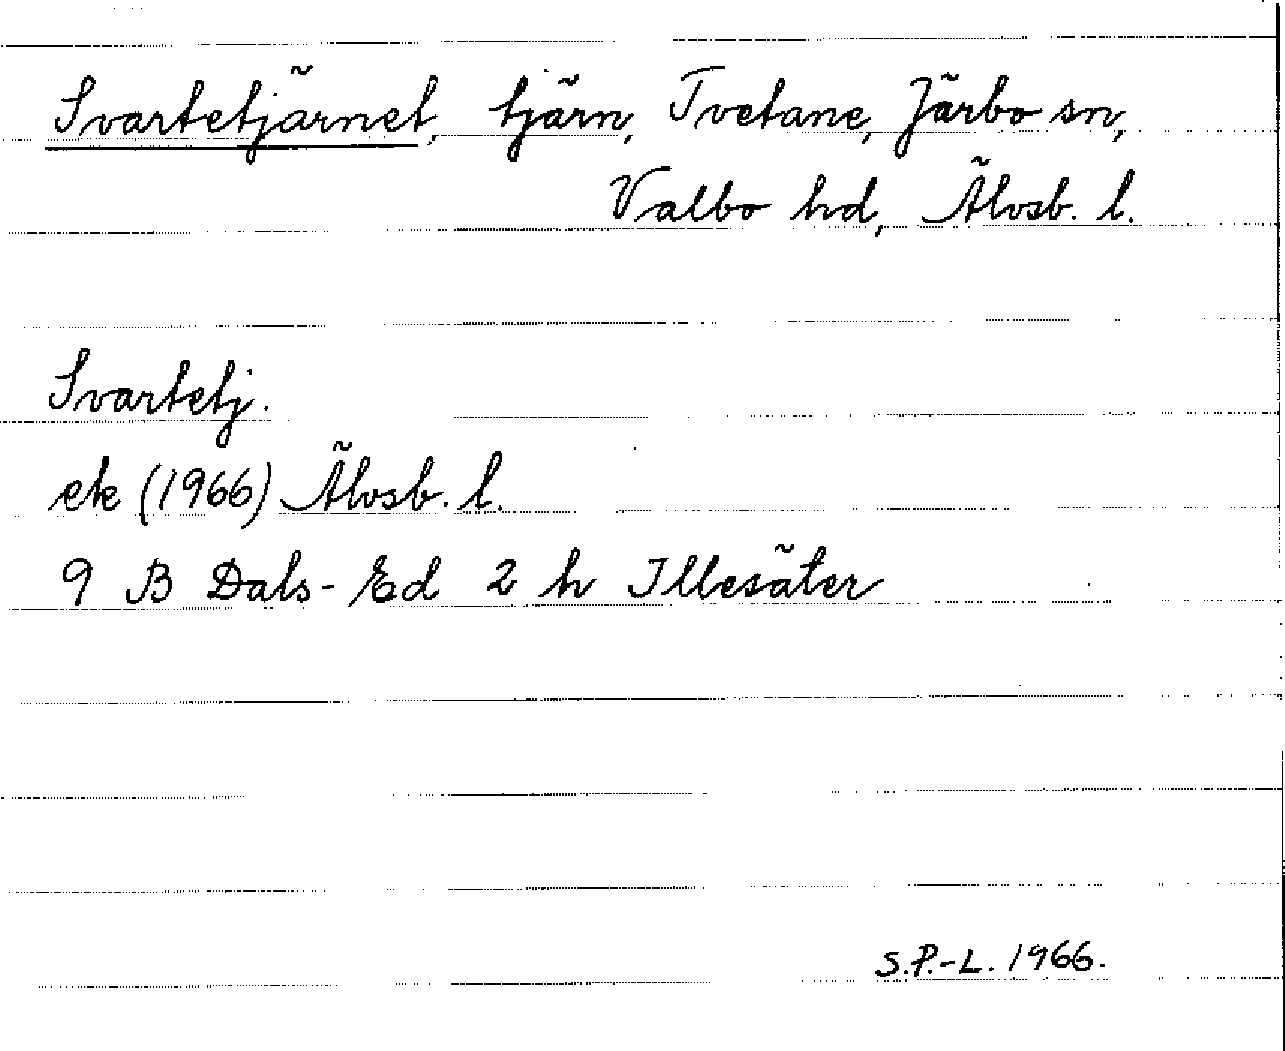 Svartetjärnet, tjärn, Tvetane, Järbo sn,
Valbo hd, Älvsb. l.
Svartetj.
ek (1966) Älvsb. l.
9 B Dals-Ed 2 h Illesäter
S.P.-L. 1966.